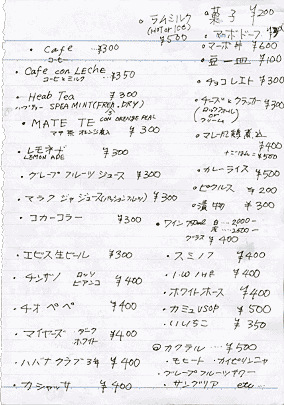 ・Cafe ...¥300
コーヒー
・Cafe con LECHE ¥350
コーヒーミルク
・Heab Tea ¥300
ハーブティー SPEAMINT(FREA.DRY)
・MATE TE CON ORANGE PEAL
マテ茶 オレンジ入り ¥300
・レモネード ¥300
LEMON ADE
・グレープフルーツジュース ¥300
・マラクジャジュース(パッションフルーツ) ¥300
・コカ・コーラー ¥300
・エビス生ビール ¥300
・チンザノ ロッソ ビアンコ ¥400
・チオペペ ¥400
・マイヤーズ ダーク ホワイト ¥400
・ハバナクラブ3年 ¥400
・カシャッサ ¥400
・ラムミルク
(HOT or ICE)
¥500
・菓子 ¥200
・マーボー丼 ¥600
・豆一皿 ¥100
・チョコレイト ¥300
・チーズ&クラッカー ¥300
¥400
+ごはん ¥500
・カレーライス ¥500
・ピクルス ¥200
・漬物 ¥300
・ワイン 白 2000-
赤 2500-
グラス ¥400
・スミノフ ¥400
・I.W.HAR ¥400
・ホワイトホース ¥400
・カミュVSOP ¥500
・いいちこ ¥350
◎カクテル ¥500
・モヒート ・カイピリーニャ
・グレープフルーツサワー
・サングリア etc